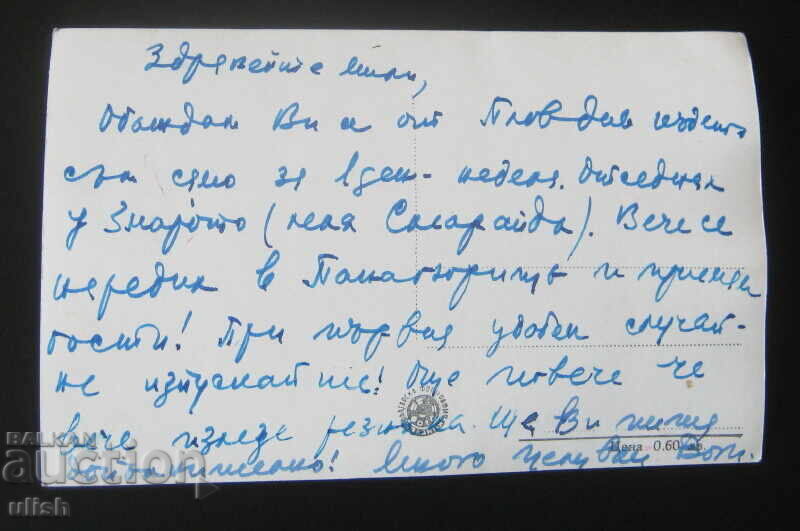 Здравейте мили,
Обаждам Ви се от Пловдив където
съм само за 1 ден - неделя. Отседнах
у Змарото (леля Смарайда). Вече се
наредих в Панагюрище и приемам
гости! При първия удобен случай -
не изпускайте! Още повече че
вече излезе резникa. Ще Ви пиша
допълнително! Много целувки
Цена 0.60 лв.
BALKAN
auction
ulish